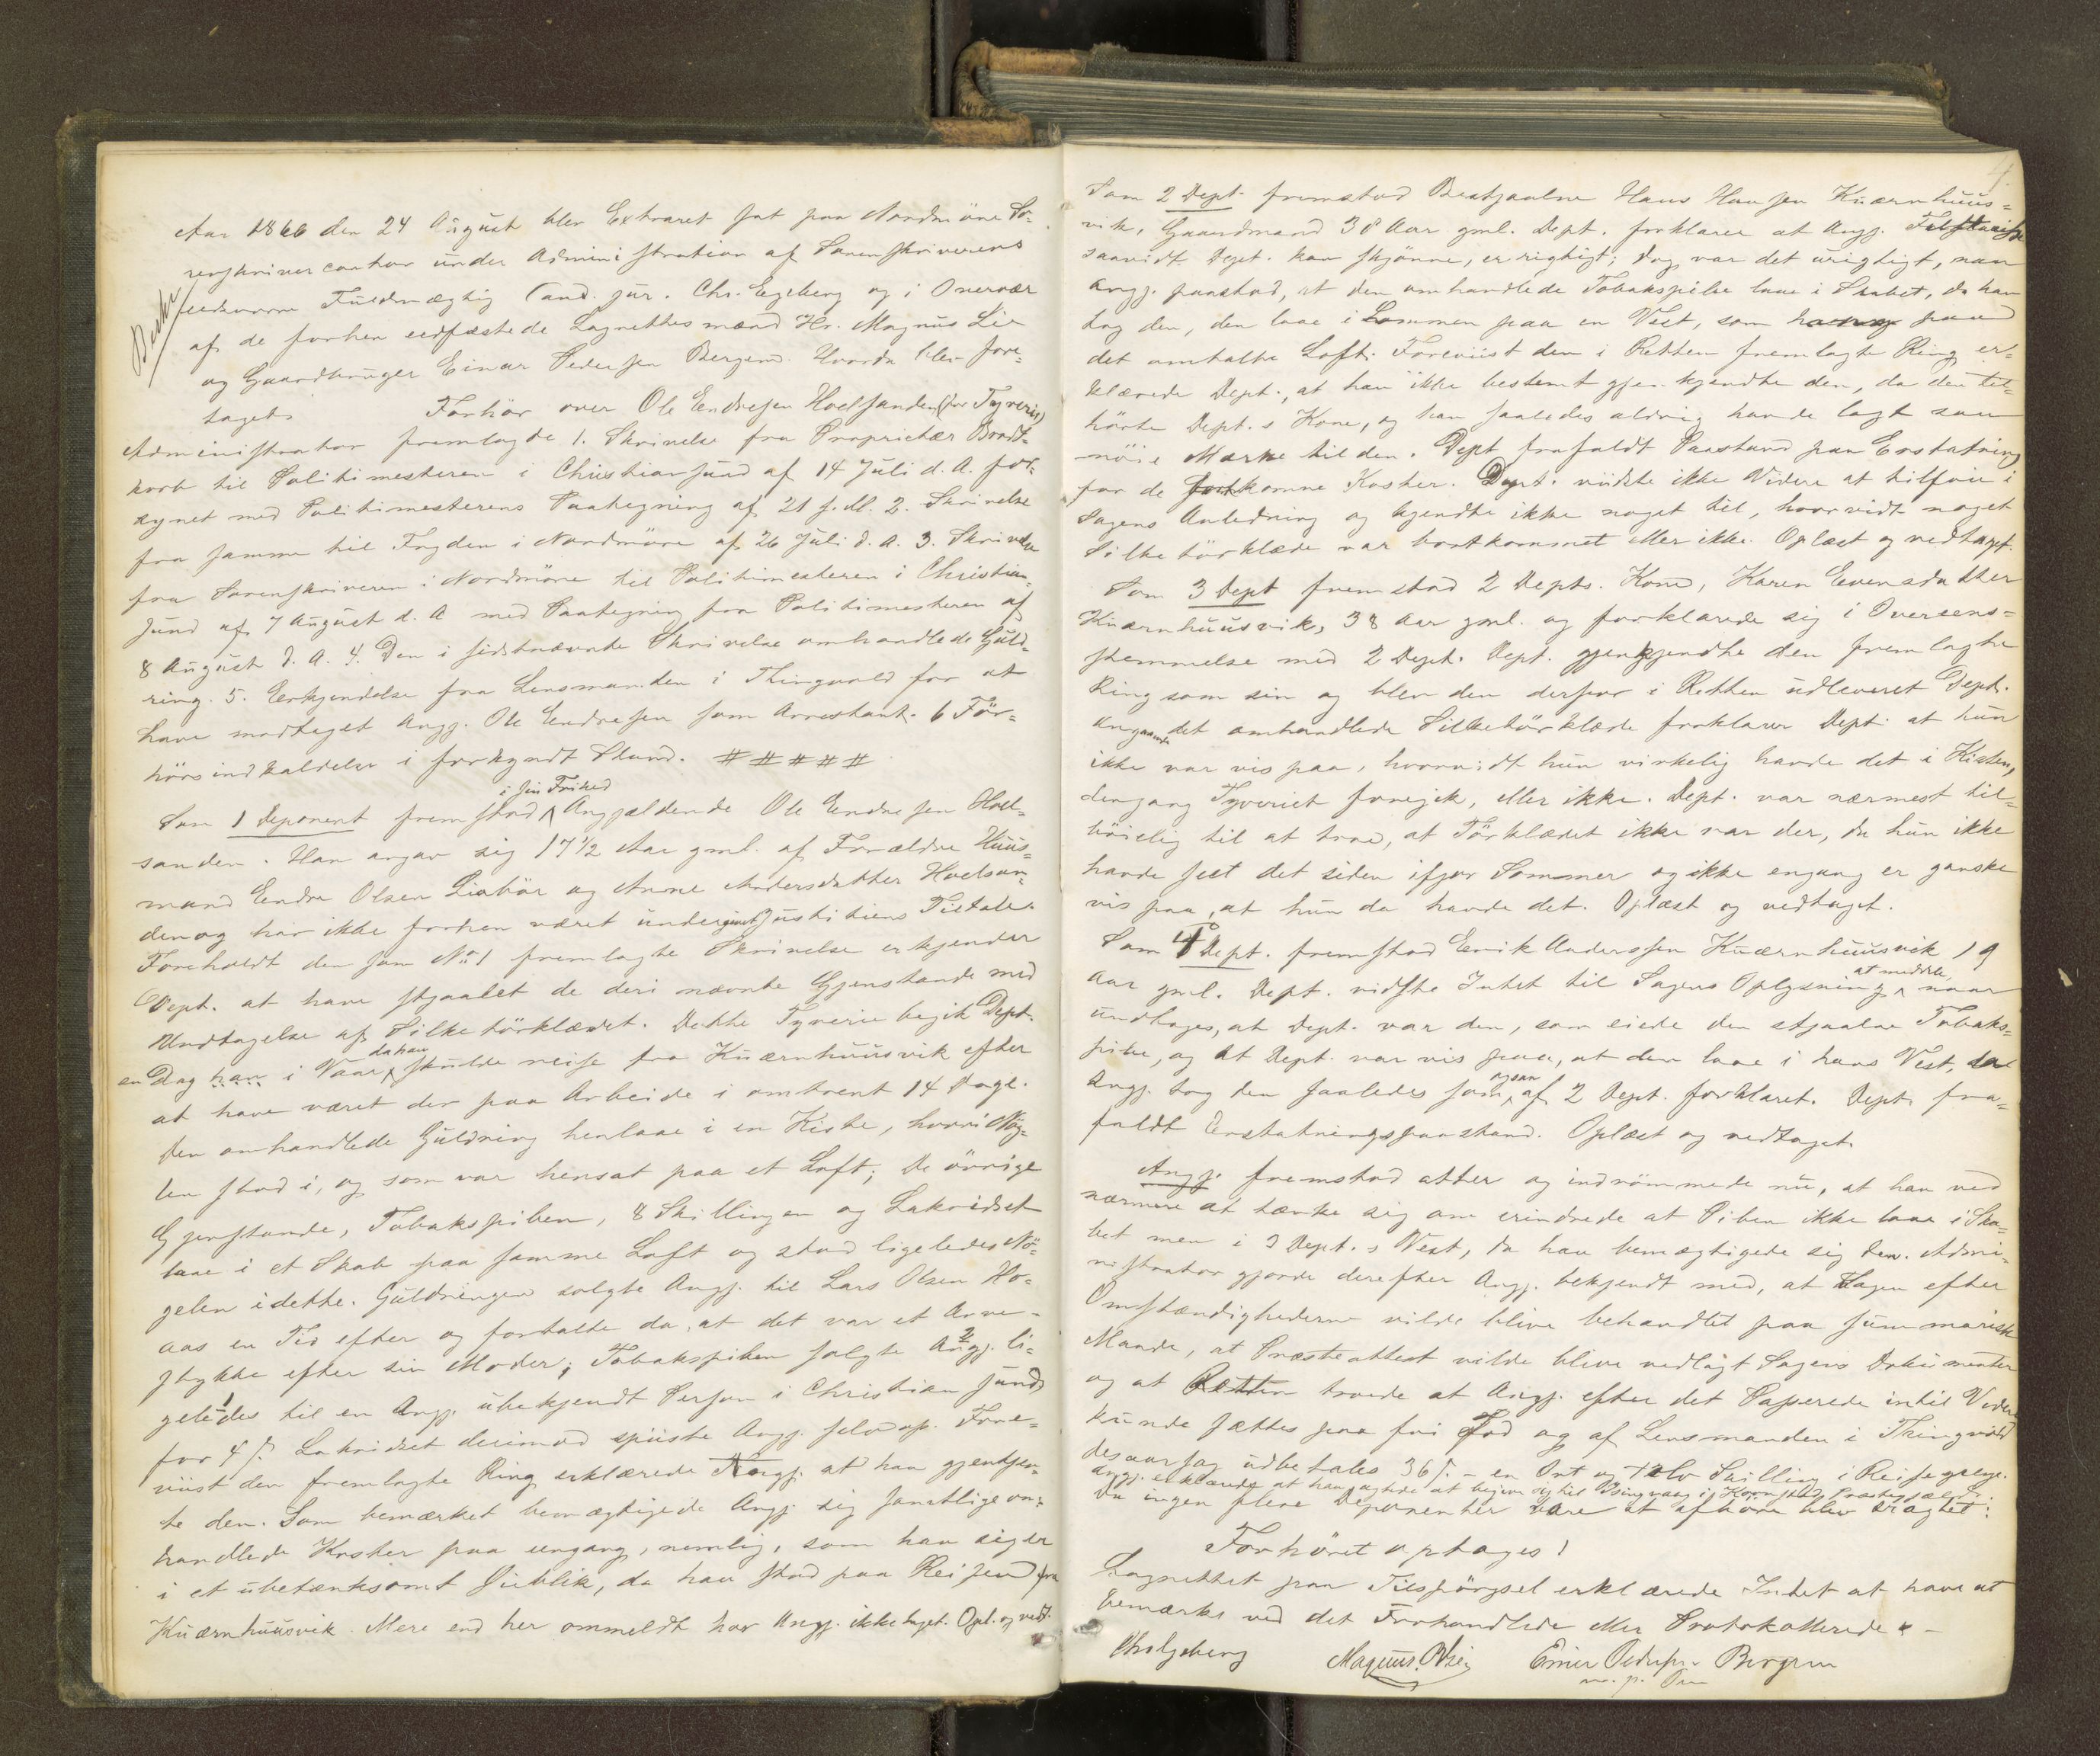 Aar 1866 den 24 August blev Extraret sat paa Nordmöre So-
renskrivercontor under Administration af Sorenskriverens
edsvorne Fuldmægtig Cand. jur. Chr. Egeberg og i Overvær
Beskr
af de forhen eedfæstede Lagrettesmænd Hr. Magnus Lie
og Gaardbruger Einar Pedersen Bergem. Hvorda blev fore-
taget:
Forhör over Ole Endresen Hoelsanden (for Tyveri)
Administrator fremlagde 1. Skrivelse fra Proprietær Brodt-
korb til Politimesteren i Christiansund af 14 Juli d. A. for-
synet med Politimesterens Paategning af 21 s. M. 2. Skrivelse
fra samme til Fogden i Nordmöre af 26 Juli d. A. 3. Skrivelse
fra Sorenskriveren i Nordmöre til Politimesteren i Christian-
sund af 7 August d. A med Paategning fra Politimesteren af
8 August d. A. 4. Den i sidstnævnte Skrivelse omhandlede Guld-
ring. 5. Erkjendelse fra Lensmanden i Thingvold for at
have modtaget Angj. Ole Endresen som Arrestant. 6 For-
hörsindkaldelse i forkyndt Stand. # # # # #
i sin Frihed
Som 1 Deponent fremstod Angjældende Ole Endresen Hoel-
sanden. Han angav sig 17 1/2 Aar gml. af Forældre Huus-
mand Endre Olsen Liabör og Anne Andersdatter Hoelsan-
den og har ikke forhen været undergivet Justitiens Tiltale.
Foreholdt den som No 1 fremlagte Skrivelse erkjender
Dept. at have stjaalet de deri nævnte Gjenstande med
Undtagelse af Silketörklædet. Dette Tyverie begik Dept.
da han
en Dag han i Vaar skulde reise fra Kværnhuusvik efter
at have været der paa Arbeide i omtrent 14 Dage.
Den omhandlede Guldring henlaae i en Kiste, hvori Nög-
len stod i, og som var hensat paa et Loft; De övrige
Gjenstande, Tobakspiben, 8 Skillingen og Lakridset
laae i et Skab paa samme Loft og stod ligeledes Nö-
gelen i dette. Guldringen solgte Angj. til Lars Olsen Ho-
aas en Tid efter og fortalte da, at det var et Arve-
stykke efter sin Moder; Tobakspiben solgte Angj. li-
geledes til en Angj. ubekjendt Person i Christiansund
for 4 s. Lakridset derimod spiiste Angj. selv op. Fore-
viist den fremlagte Ring erklærede Angj. at han gjenkjen-
te den. Som bemærket bemægtigede Angj. sig samtlige om-
handlede Koster paa eengang, nemlig, som han siger
i et ubetænksomt Öieblik, da han stod paa Reisen fra
Kværnhuusvik. Mere end her ommeldt har Angj. ikke taget. Opl. og vedt.
4.
Som 2 Dept. fremstod Bestjaalne Hans Hansen Kværnhuus-
vik, Gaardmand 38 Aar gml. Dept. forklarer at Angj. Tilstaaelse
saavidt Dept. kan skjönne, er rigtigt; dog var det urigtigt, naar
Angj. paastod, at den omhandlede Tobakspibe laae i Skabet, da han
tog den, den laae i Lommen paa en Vest, som hang paa
det omtalte Loft. Foreviist den i Retten fremlagte Ring er-
klærede Dept., at han ikke bestemt gjenkjendte den, da den til-
hörte Dept.s Kone, og han saaledes aldrig havde lagt saa
nöie Mærke til den. Dept frafaldt Paastand paa Erstatning
for de bortkomne Koster. Dept. vidste ikke Videre at tilföie i
Sagens Anledning og kjendte ikke noget til, hvorvidt noget
Silketörklæde var bortkommet eller ikke. Oplæst og vedtaget.
Som 3 Dept fremstod 2 Depts. Kone, Karen Evensdatter
Kværnhuusvik, 38 Aar gml. og forklarede sig i Overeens-
stemmelse med 2 Dept. Dept. gjenkjendte den fremlagte
Ring som sin og blev den derfor i Retten udleveret Dept.
Angaaende det omhandlede Silketörklæde forklarer Dept. at hun
ikke var vis paa, hvorvidt hun virkelig havde det i Kisten,
dengang Tyveriet foregik, eller ikke. Dept. var nærmest til-
böielig til at troe, at Törklædet ikke var der, da hun ikke
havde seet det siden ifjor Sommer og ikke engang er ganske
vis paa, at hun da havde det. Oplæst og vedtaget.
Som 4 Dept. fremstod Erik Anderssen Kværnhuusvik 19
at meddele
Aar gml. Dept. vidste Intet til Sagens Oplysning naar
undtages, at Dept. var den, som eiede den stjaalne Tobaks-
pibe, og at Dept. var vis paa, at den laae i hans Vest, da
ogsaa
Angj. tog den saaledes som af 2 Dept. forklaret. Dept. fra-
faldt Erstatningspaastand. Oplæst og vedtaget.
Angj. fremstod atter og indrömmede nu, at han ved
nærmere at tænke sig om erindrede at Piben ikke laae i Ska-
bet men i 3 Dept.s Vest, da han bemægtigede sig den. Admi-
nistrator gjorde derefter Angj. bekjendt med, at Sagen efter
Omstændighederne vilde blive behandlet paa summarisk
Maade, at Præsteattest vilde blive vedlagt Sagens Dokumenter
og at Retten troede at Angj. efter det Passerede intil Videre
kunde sættes paa fri Fod og af Lensmanden i Thingvold
desaarsag udbetales 36 s. - en Ort og tolv Skilling i Reisepenge.
Angj. erklærede at han agtede at begive sig til i Præstegjæld.
Da ingen flere Deponenter vare at afhöre blev eragtet:
Forhöret optages!
Lagrettet paa Tilspörgsel erklærede Intet at have at
bemærke ved det Forhandlede eller Protokollerede. -
Chr Egeberg Magnus Lie Einer Pedersen Bergem
m. p. Pen